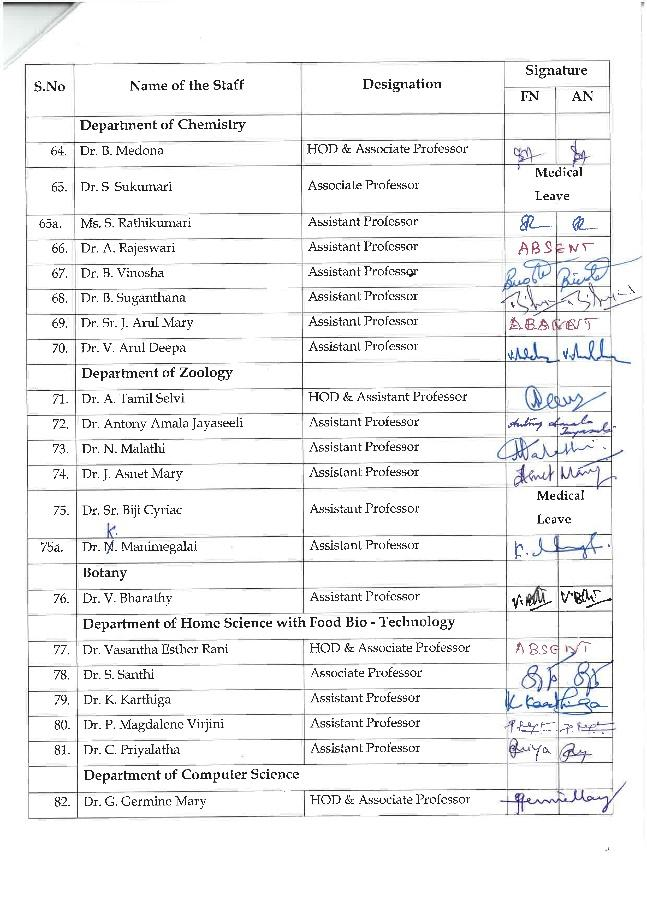 S.No Name of the Staff Designation Signature
FN AN
Department of Chemistry
64. Dr. B. Medona HOD & Associate Professor
65. Dr. S Sukumari Associate Professor Medical
Leave
65a. Ms. S. Rathikumari Assistant Professor
66. Dr. A. Rajeswari Assistant Professor ABSENT
67. Dr. B. Vinosha Assistant Professor
68. Dr. B. Suganthana Assistant Professor
69. Dr. Sr. J. Arul Mary Assistant Professor
70. Dr. V. Arul Deepa Assistant Professor
Department of Zoology
71. Dr. A. Tamil Selvi HOD & Assistant Professor
72. Dr. Antony Amala Jayaseeli Assistant Professor Antony Amala
73. Dr. N. Malathi Assistant Professor
74. Dr. J. Asnet Mary Assistant Professor Asnet Mary
75. Dr. Sr. Biji Cyriac Assistant Professor Medical
Leave
K.
75a. Dr. N. Manimegalai Assistant Professor
Botany
76. Dr. V. Bharathy Assistant Professor
Department of Home Science with Food Bio - Technology
77. Dr. Vasantha Esther Rani HOD & Associate Professor ABSENT
78. Dr. S. Santhi Associate Professor
79. Dr. K. Karthiga Assistant Professor K Kaarthiga
80. Dr. P. Magdalene Virjini Assistant Professor
81. Dr. C. Priyalatha Assistant Professor Priya
Department of Computer Science
82. Dr. G. Germine Mary HOD & Associate Professor